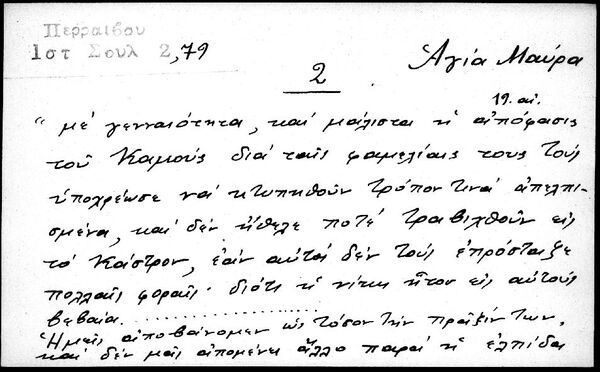 Περραιβου
Ιστ Σουλ 2,79
Ἁγία Μαύρα
2
19. αἰ.
"μέ γενναιότητα, καί μάλιστα ἡ ἀπόφασις
τοῦ Καμούς διά ταῖς φαμελίαις τους τούς
ὑποχρέωσε νά κτυπηθοῦν τρόπον τινά ἀπελπι-
σμένα, καί δέν ἤθελε ποτέ τραβιχθοῦν εἰς
τό Κάστρον, ἐάν αὐτοί δέν τούς ἐπρόσταξε
πολλαῖς φοραῖς· διότι ἡ νίκη ἦτον εἰς αὐτούς
βεβαία. ..................
Ἡμεῖς ἀποβαίνομεν ὡς τόσον τήν πρᾶξίν των,
καί δέν μᾶς ἀπομένει ἄλλο παρά ἡ ἐλπίδα